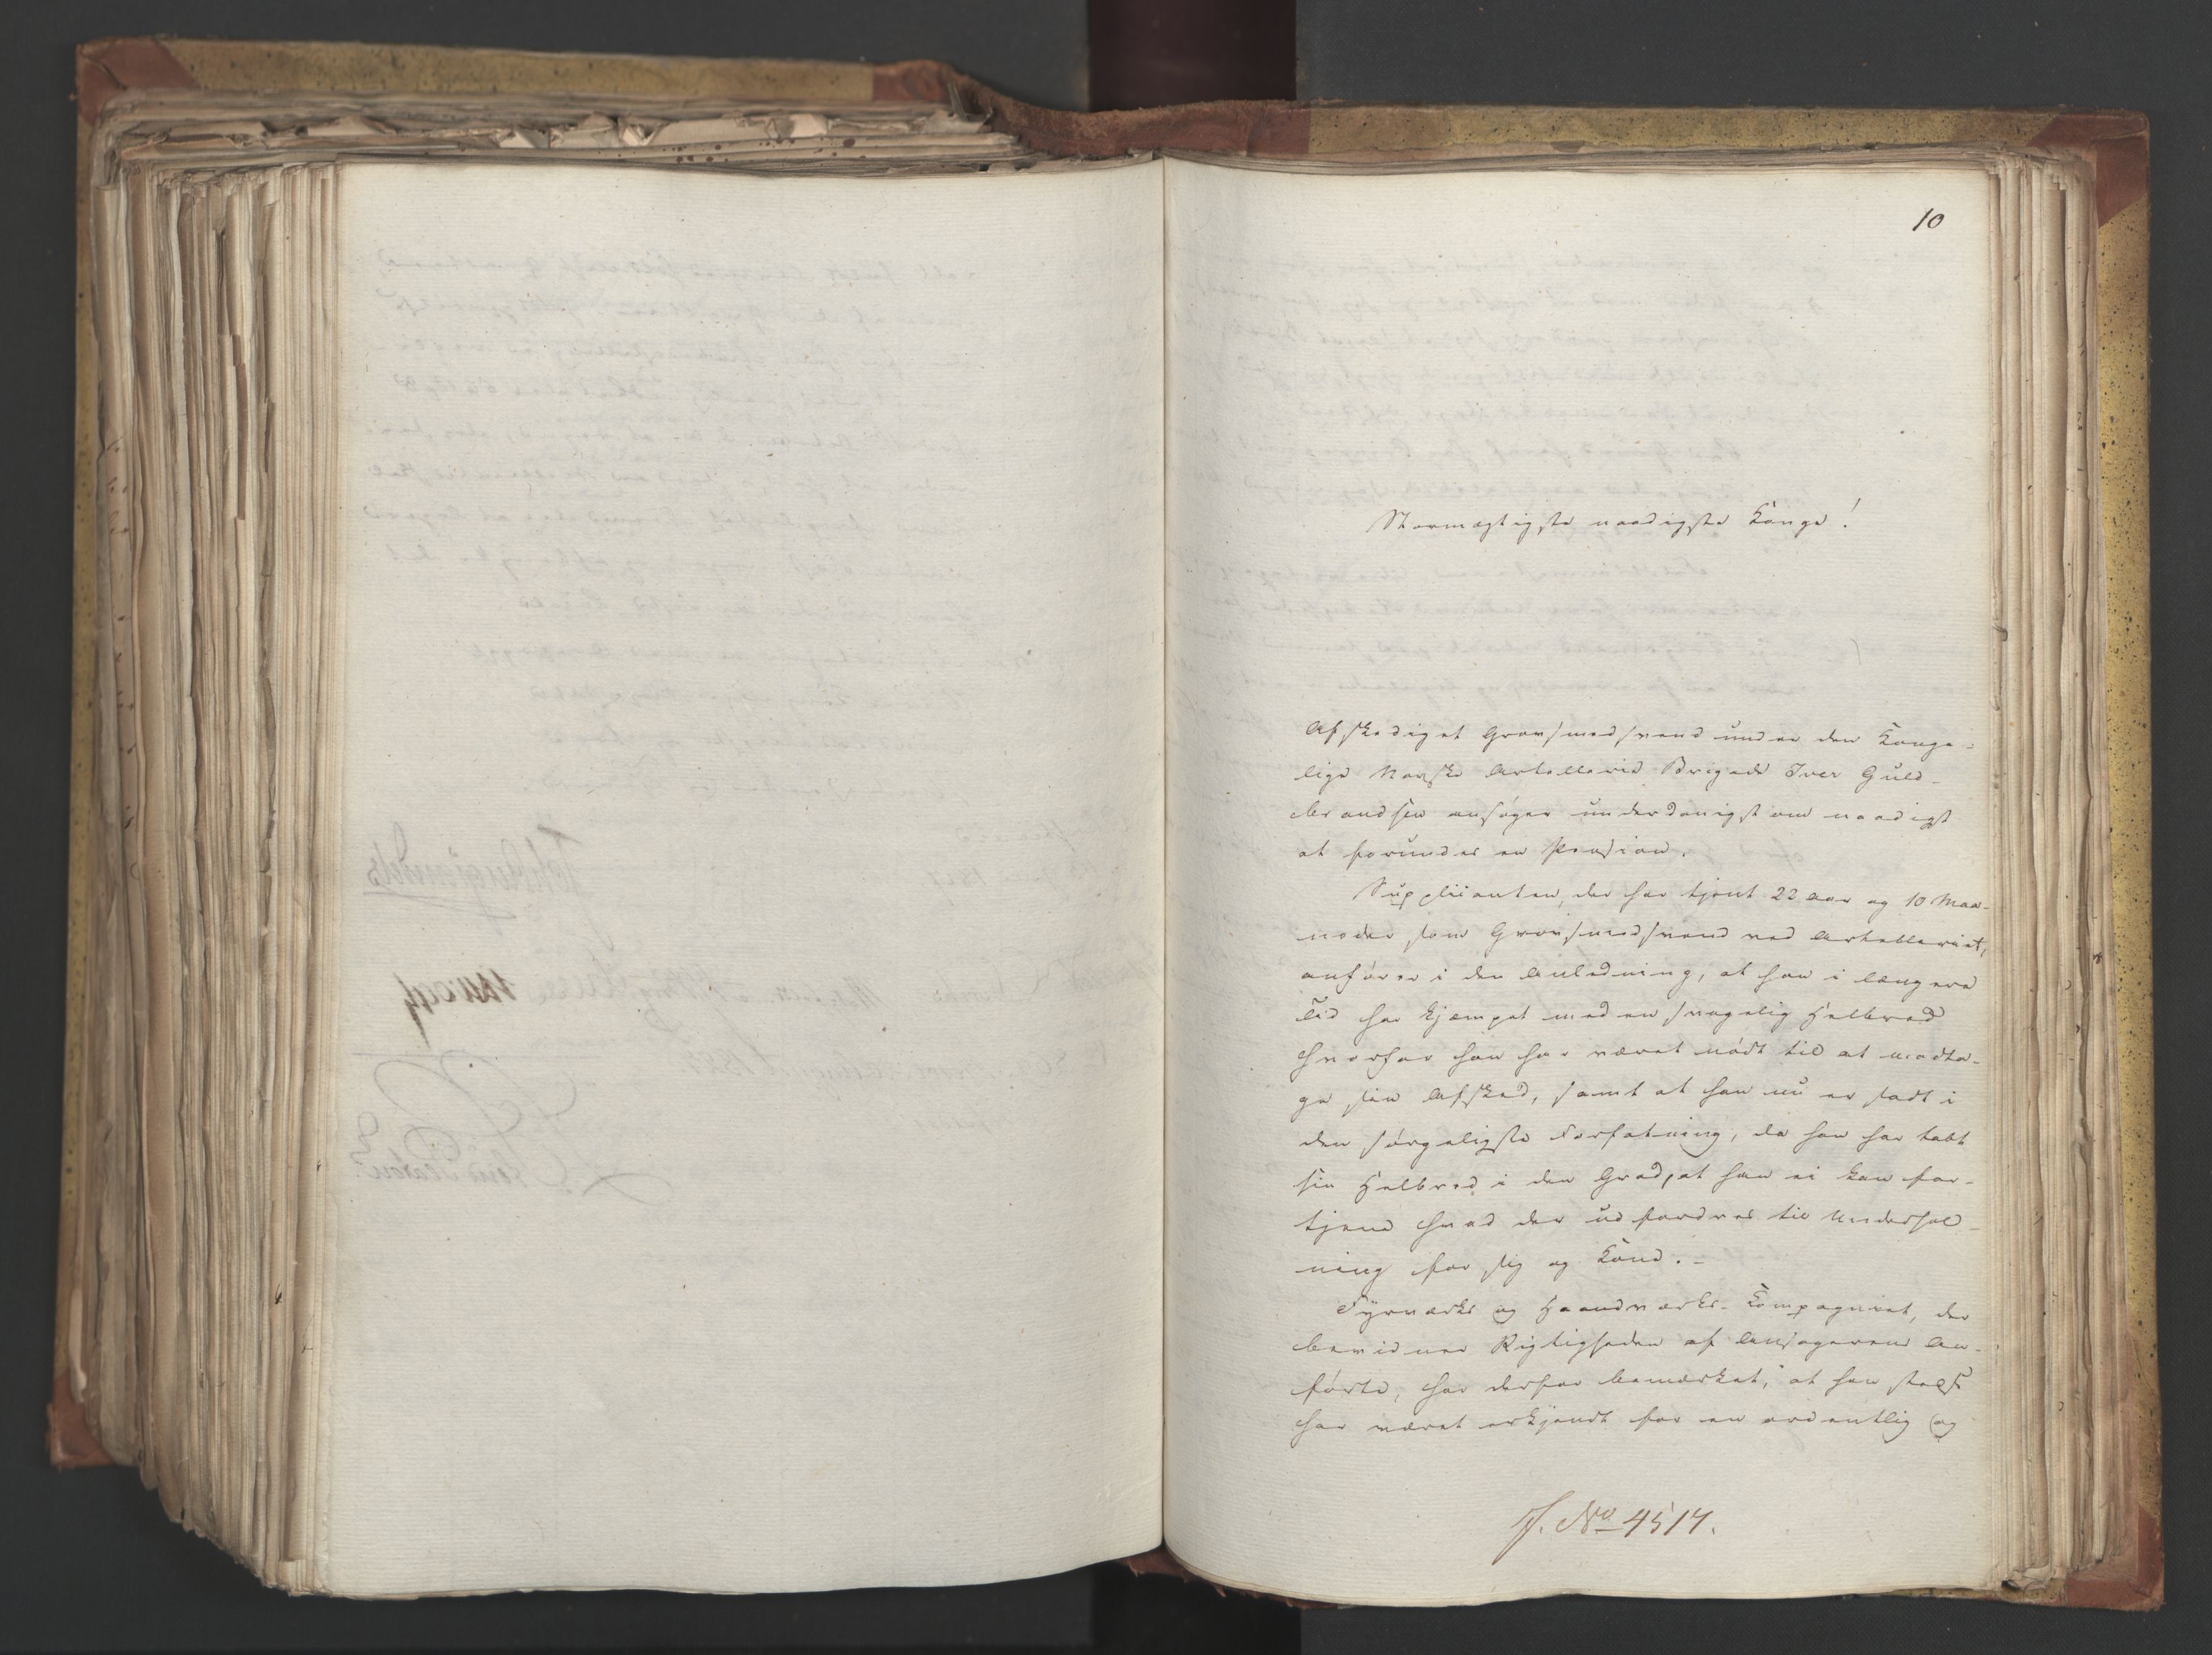 10
Stormægtigste naadigste Konge!
Afskediget Grovsmedsvend under den Konge-
lige Norske Artellerie Brigade Iver Guld-
brandsen ansøger underdanigst om naadigst
at forundes en Pension.
Supplicanten, der har tjent 22 Aar og 10 Maa-
neder som Grovsmedsvend ved Artelleriet,
anfører i den Anledning, at han i længere
Tid har kjæmpet med en svagelig Helbred
hvorfor han har været nødt til at modta-
ge sin Afsked, samt at han nu er sadt i
den sørgeligste Forfatning, da han har tabt
sin Helbred i den Grad, at han ei kan for-
tjene hvad der udfordres til Underhol-
ning for sig og Kone. -
Fyrværks og Haandværks-Kompagniet, der
bevidner Rigtigheden af Ansøgerens An-
førte, har derhos bemærket, at han stedse
har været erkjendt for en ordentlig og
J. No 4517.